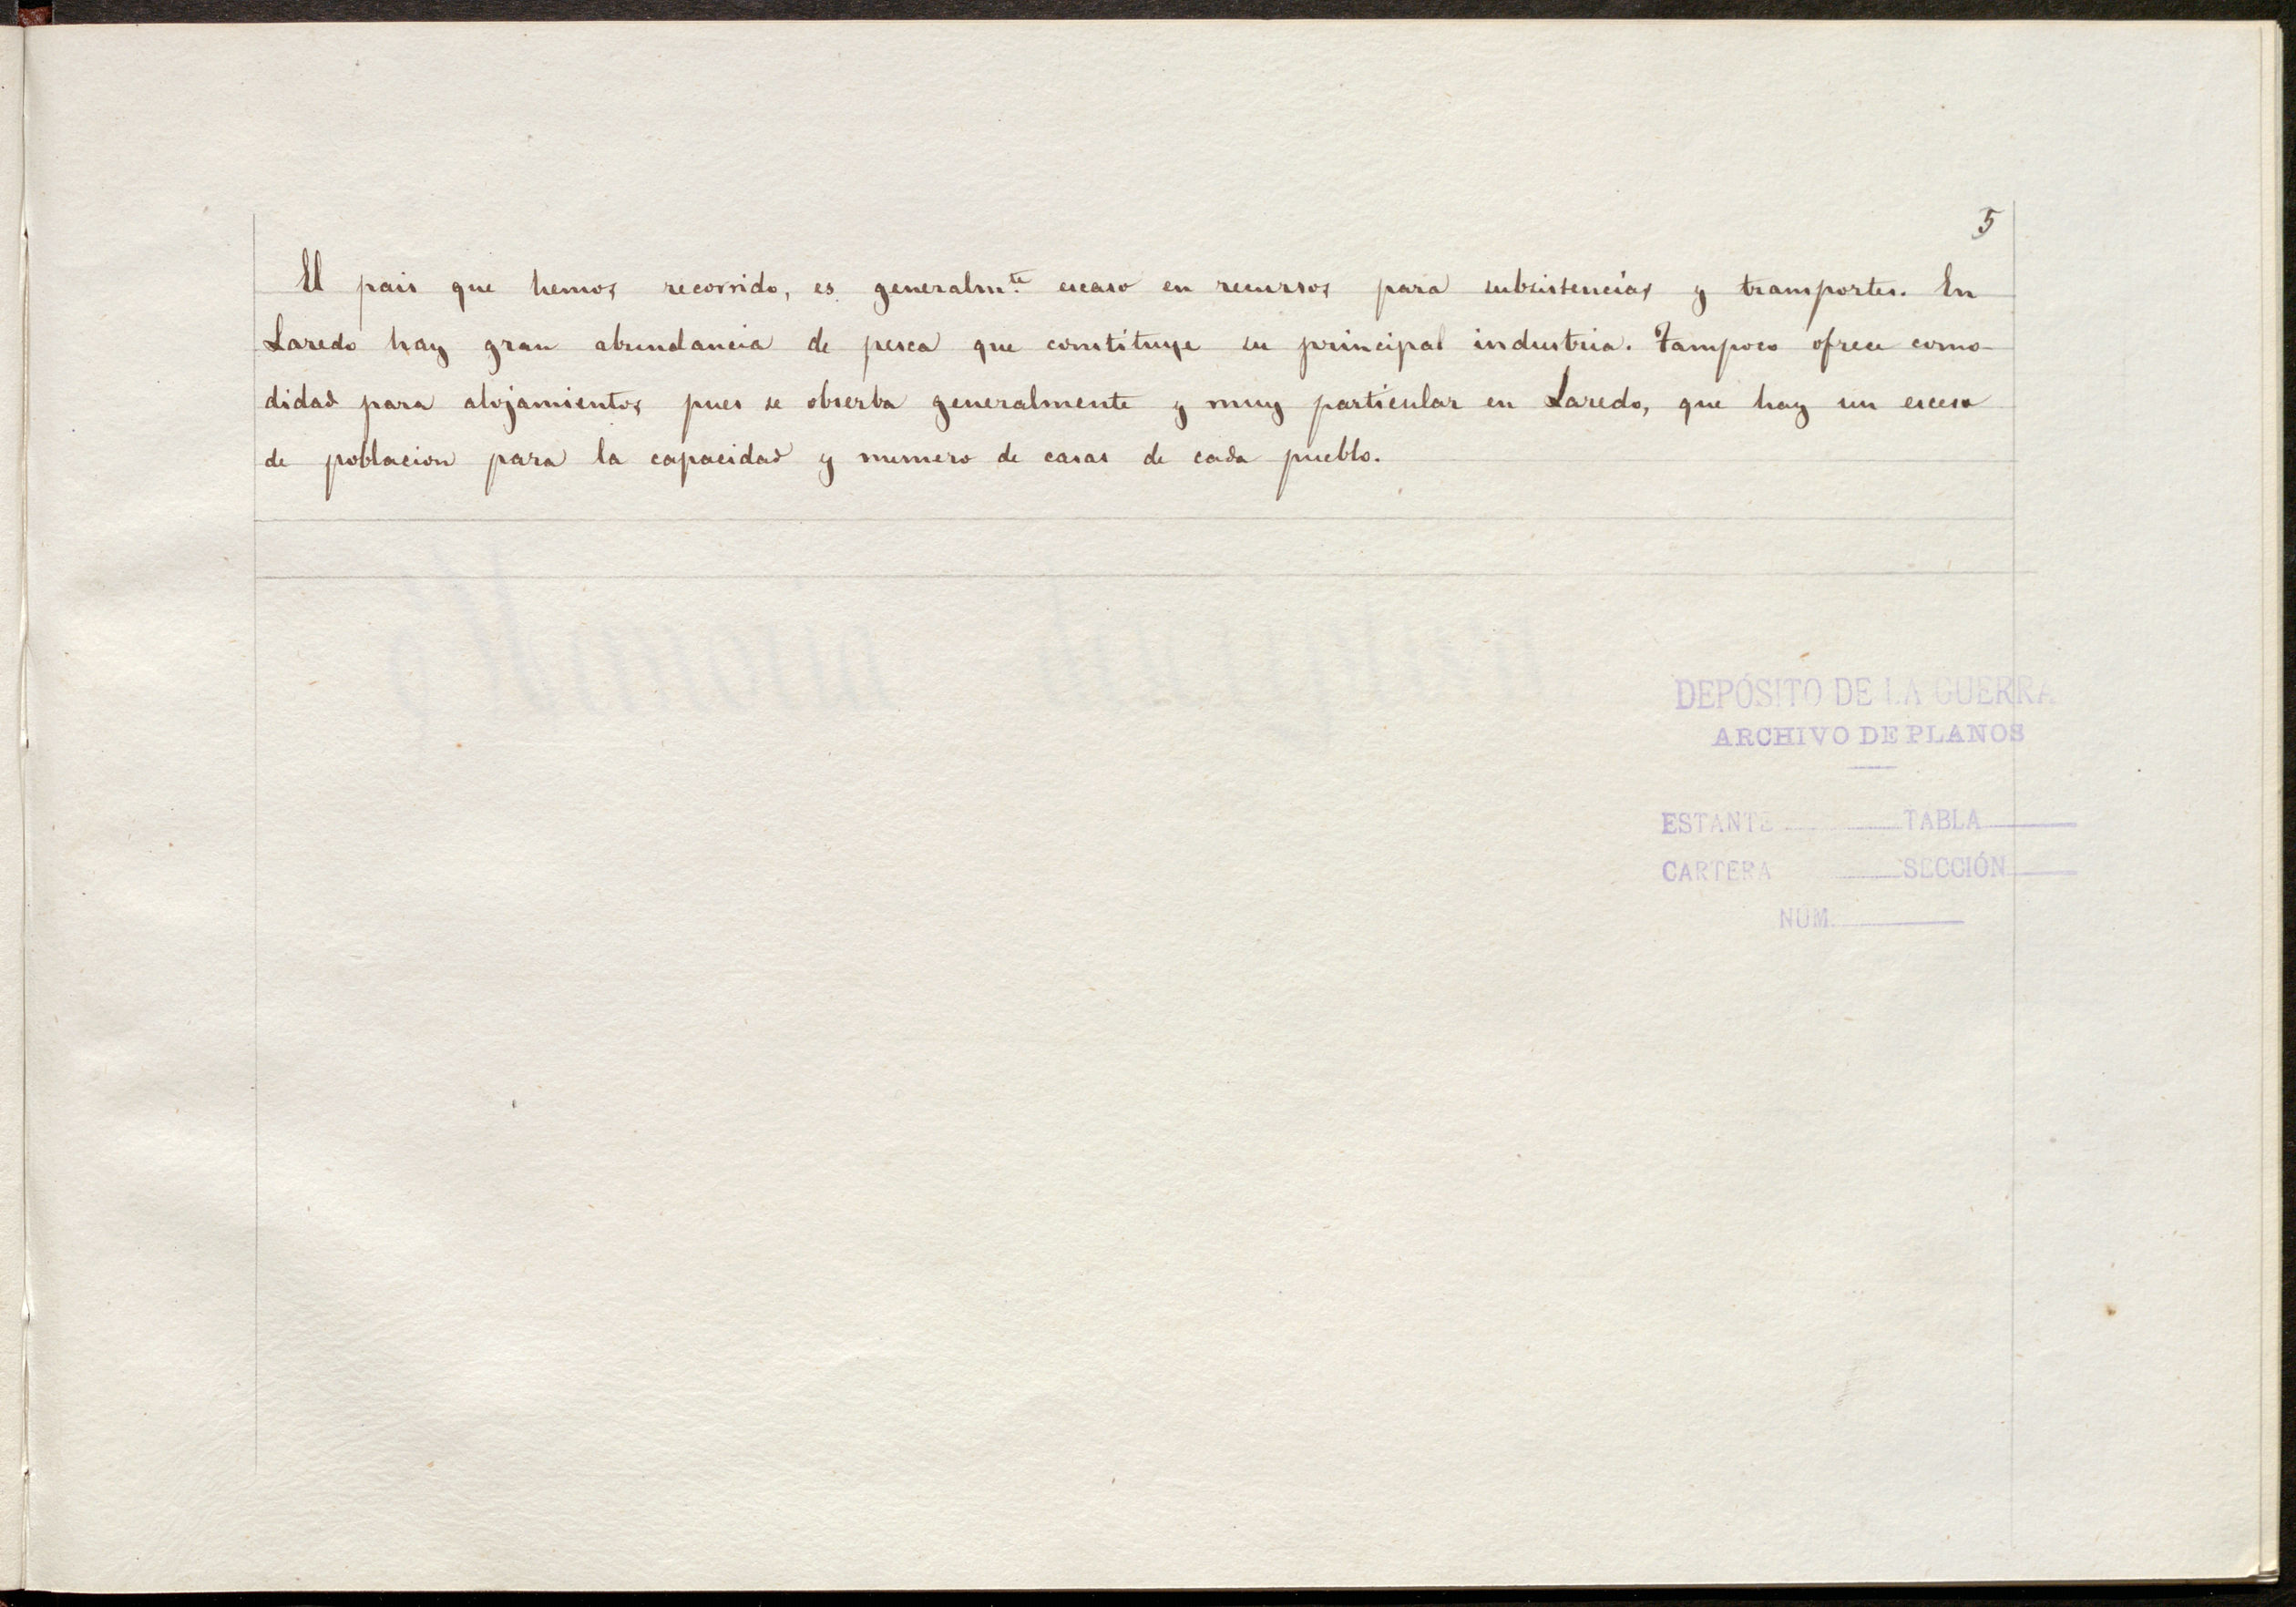 5
El pais que hemos recorrido, es generalm.te escaso en recursos para subsistencias y transportes. En
Laredo hay gran abundancia de pesca que constituye su principal industria. Tampoco ofrece como-
didad para alojamientos pues se obserba generalmente y muy particular en Laredo, que hay un esceso
de poblacion para la capacidad y numero de casas de cada pueblo.
DEPÓSITO DE LA GUERRA
ARCHIVO DE PLANOS
ESTANTE TABLA
CARTERA SECCIÓN
NÚM.